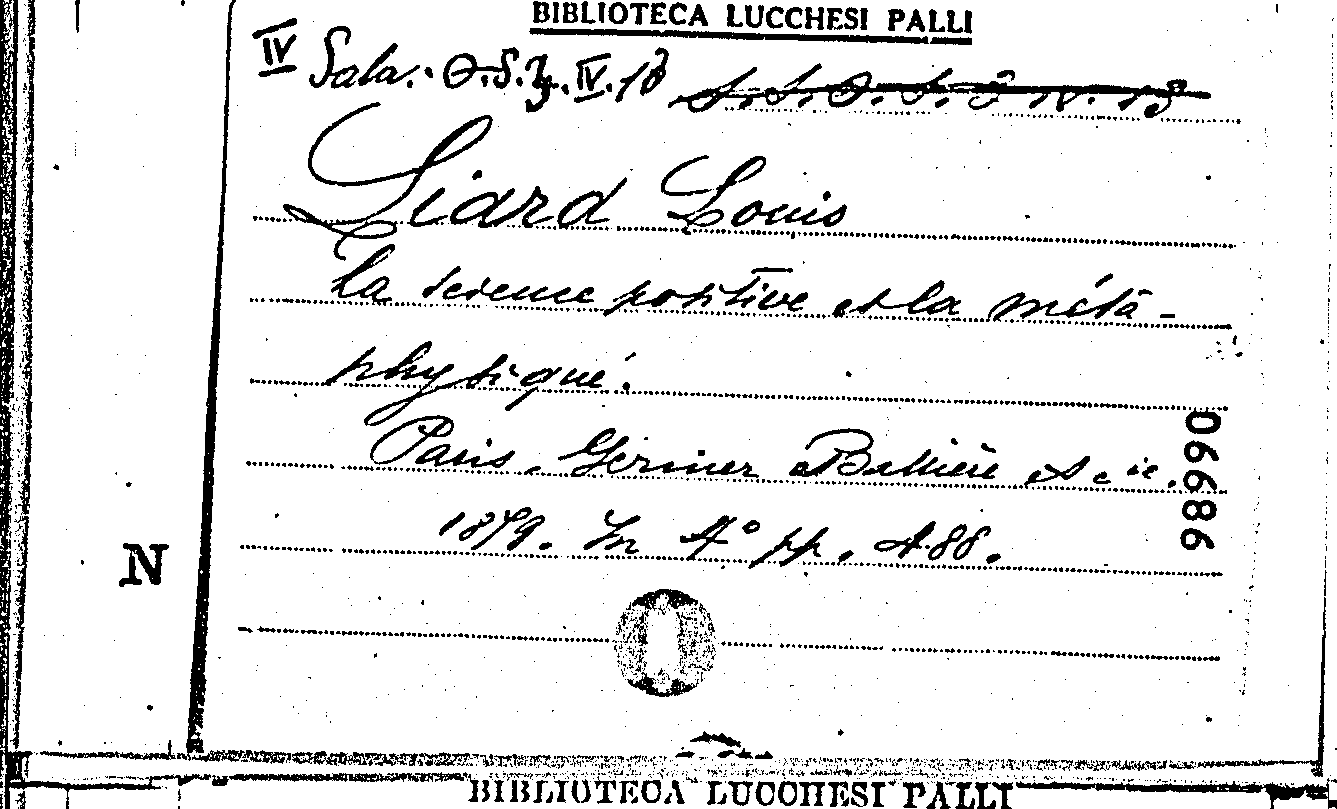 BIBLIOTECA LUCCHESI PALLI
IV Sala. O.S.3.IV.18
Liard Louis
La science positive et la méta-
physique.
Paris. Germer Baillière et cie.
1879. In 4° pp. 488.
98990
N
BIBLIOTECA LUCCHESI PALLI